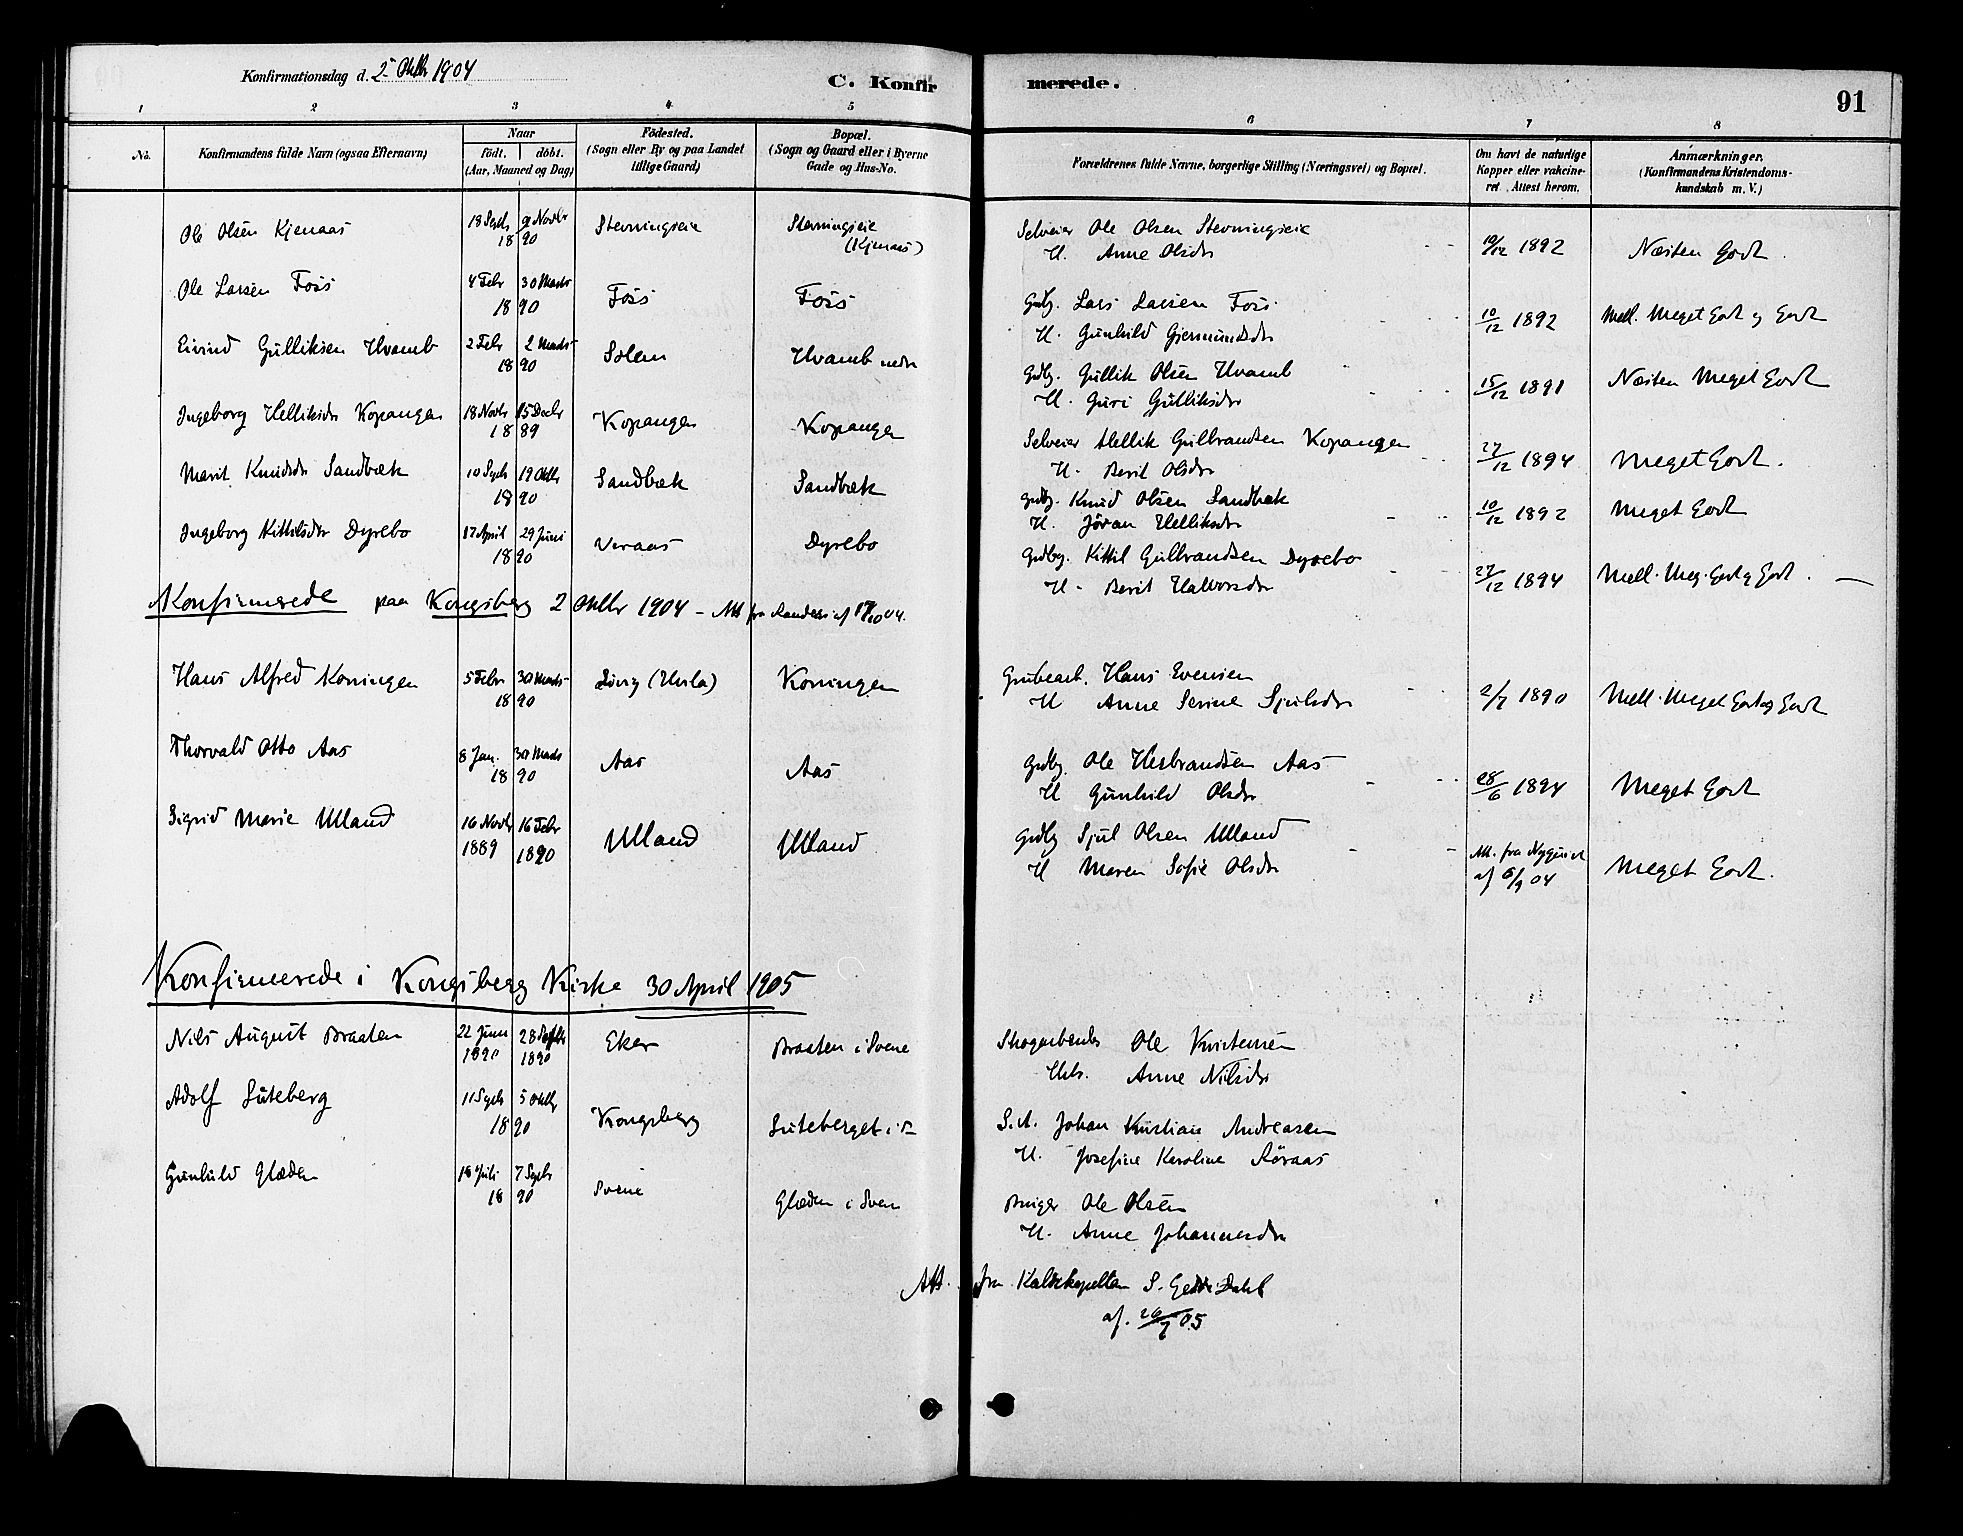 Konfirmationsdag d. 2 Oktbr 1904
C. Konfirmerede.
91
1 2 3 4 5 6 7 8
No.
Konfirmandens fulde Navn (ogsaa Efternavn)
Naar
födt. döbt.
(Aar, Maaned og Dag)
Födested.
(Sogn eller By og paa Landet
tillige Gaard)
Bopæl.
(Sogn og Gaard eller i Byerne
Gade og Hus-No.
Forældrenes fulde Navne, borgerlige Stilling (Næringsvei) og Bopæl.
Om havt de naturlige
Kopper eller vakcine-
ret. Attest herom.
Anmærkninger.
(Konfirmandens Kristendoms-
kundskab m. V.)
Ole Olsen Kjenaas 18 Septr 9 Novbr 1890 Stevningseie Stevningseie (Kjenaas) Selveier Ole Olsen Stevningseie 10/12 1892 Næsten Godt.
H. Anne Olsdr
Ole Larsen Foss 4 Febr 30 Marts 1890 Foss Foss Grdbg. Lars Larsen Foss 10/12 1892 Mell. Meget Godt og Godt
H. Gunhild Gjermundsdr
Eivind Gulliksen Hvamb 2 Febr 2 Marts 1890 Solem Hvamb nedre Grdbg. Gullik Olsen Hvamb 15/12 1891 Næsten Meget Godt
H. Guri Gulliksdr
Ingeborg Helliksdr Kopangen 18 Novbr 15 Decbr 1889 Kopangen Kopangen Selveier Hellik Gulbrandsen Kopangen 27/12 1894 Meget Godt.
H. Berit Olsdr
Marit Knudsdr Sandbæk 10 Septr 19 Oktbr 1890 Sandbæk Sandbæk Grdbg. Knud Olsen Sandbæk 10/12 1892 Meget Godt
H. Jöran Helliksdr
Ingeborg Kittilsdr Dyrebo 17 April 29 Juni 1890 Veraas Dyrebo Grdbg. Kittil Gulbrandsen Dyrebo 27/12 1894 Mell. Meg. Godt og Godt.
H. Berit Halvorsdr
Konfirmerede paa Kongsberg 2 Oktbr 1904 - Att fra Randers af 17/10 04.
Hans Alfred Korningen 5 Febr 30 Marts 1890 (Uvla) Korningen Grubearb. Hans Evensen 2/7 1890 Mell. Meget Godt og Godt
H Anne Serine Sjulsdr
Thorvald Otto Aas 8 Jan. 30 Marts 1890 Aas Aas Grdbg. Ole Herbrandsen Aas 28/6 1894 Meget Godt
H Gunhild Olsdr
Sigrid Marie Ulland 16 Novbr 1889 16 Febr 1890 Ulland Ulland Grdbg Sjul Olsen Ulland Att. fra Nyquist af 5/9 04 Meget Godt.
H Maren Sofie Olsdr
Konfirmerede i Kongsberg Kirke 30 April 1905
Nils August Braaten 22 Juni 1890 28 Septbr 1890 Eker Braaten i Svene Skogarbeider Ole Kristensen
Hstr. Anne Nilsdr
Adolf Luteberg 11 Septr 5 Oktbr 1890 Kongsberg Luteberget i S.A. Johan Kristian Andreasen
H. Josefine Karoline Röraas
Gunhild Glæden 18 Juli 7 Septr 1890 Svene Glæden i Svene Bruger Ole Olsen
H. Anne Johannesdr
Att. fra Kaldskapellan S. Dahl
af. 26/7 05